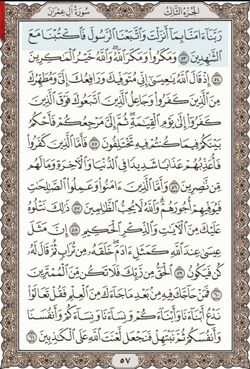 سُورَةُ آلِ عِمْرَانَ الجُزْءُ الثَّالِثُ
رَبَّنَآ ءَامَنَّا بِمَآ أَنزَلْتَ وَٱتَّبَعْنَا ٱلرَّسُولَ فَٱكْتُبْنَا مَعَ
ٱلشَّٰهِدِينَ ٥٣ وَمَكَرُوا۟ وَمَكَرَ ٱللَّهُ وَٱللَّهُ خَيْرُ ٱلْمَٰكِرِينَ
٥٤ إِذْ قَالَ ٱللَّهُ يَٰعِيسَىٰٓ إِنِّى مُتَوَفِّيكَ وَرَافِعُكَ إِلَىَّ وَمُطَهِّرُكَ
مِنَ ٱلَّذِينَ كَفَرُوا۟ وَجَاعِلُ ٱلَّذِينَ ٱتَّبَعُوكَ فَوْقَ ٱلَّذِينَ
كَفَرُوٓا۟ إِلَىٰ يَوْمِ ٱلْقِيَٰمَةِ ثُمَّ إِلَىَّ مَرْجِعُكُمْ فَأَحْكُمُ
بَيْنَكُمْ فِيمَا كُنتُمْ فِيهِ تَخْتَلِفُونَ ٥٥ فَأَمَّا ٱلَّذِينَ كَفَرُوا۟
فَأُعَذِّبُهُمْ عَذَابًا شَدِيدًا فِى ٱلدُّنْيَا وَٱلْءَاخِرَةِ وَمَا لَهُم
مِّن نَّٰصِرِينَ ٥٦ وَأَمَّا ٱلَّذِينَ ءَامَنُوا۟ وَعَمِلُوا۟ ٱلصَّٰلِحَٰتِ
فَيُوَفِّيهِمْ أُجُورَهُمْ وَٱللَّهُ لَا يُحِبُّ ٱلظَّٰلِمِينَ ٥٧ ذَٰلِكَ نَتْلُوهُ
عَلَيْكَ مِنَ ٱلْءَايَٰتِ وَٱلذِّكْرِ ٱلْحَكِيمِ ٥٨ إِنَّ مَثَلَ
عِيسَىٰ عِندَ ٱللَّهِ كَمَثَلِ ءَادَمَ خَلَقَهُۥ مِن تُرَابٍ ثُمَّ قَالَ لَهُۥ
كُن فَيَكُونُ ٥٩ ٱلْحَقُّ مِن رَّبِّكَ فَلَا تَكُن مِّنَ ٱلْمُمْتَرِينَ
٦٠ فَمَنْ حَآجَّكَ فِيهِ مِنۢ بَعْدِ مَا جَآءَكَ مِنَ ٱلْعِلْمِ فَقُلْ تَعَالَوْا۟
نَدْعُ أَبْنَآءَنَا وَأَبْنَآءَكُمْ وَنِسَآءَنَا وَنِسَآءَكُمْ وَأَنفُسَنَا
وَأَنفُسَكُمْ ثُمَّ نَبْتَهِلْ فَنَجْعَل لَّعْنَتَ ٱللَّهِ عَلَى ٱلْكَٰذِبِينَ ٦١
٥٧